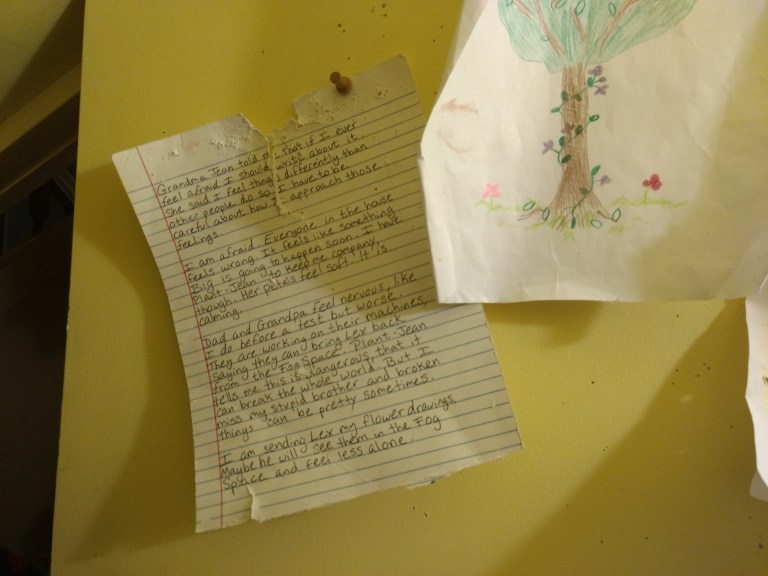 Grandma Jean told me that if I ever
feel afraid I should write about it.
She said I feel things differently than
other people do so I have to be
careful about how I approach those
feelings.
I am afraid. Everyone in the house
feels wrong. It feels like something
Big is going to happen soon. I have
Plant-Jean to keep me company,
though. Her petals feel soft. It is
calming.
Dad and Grandpa feel nervous, like
I do before a test but worse.
They are working on their machines,
saying they can bring Lex back
from the Fog Space. Plant-Jean
tells me this is dangerous, that it
can break the whole world. But I
miss my stupid brother and broken
things can be pretty sometimes.
I am sending Lex my flower drawings.
Maybe he will see them in the Fog
Space and feel less alone.